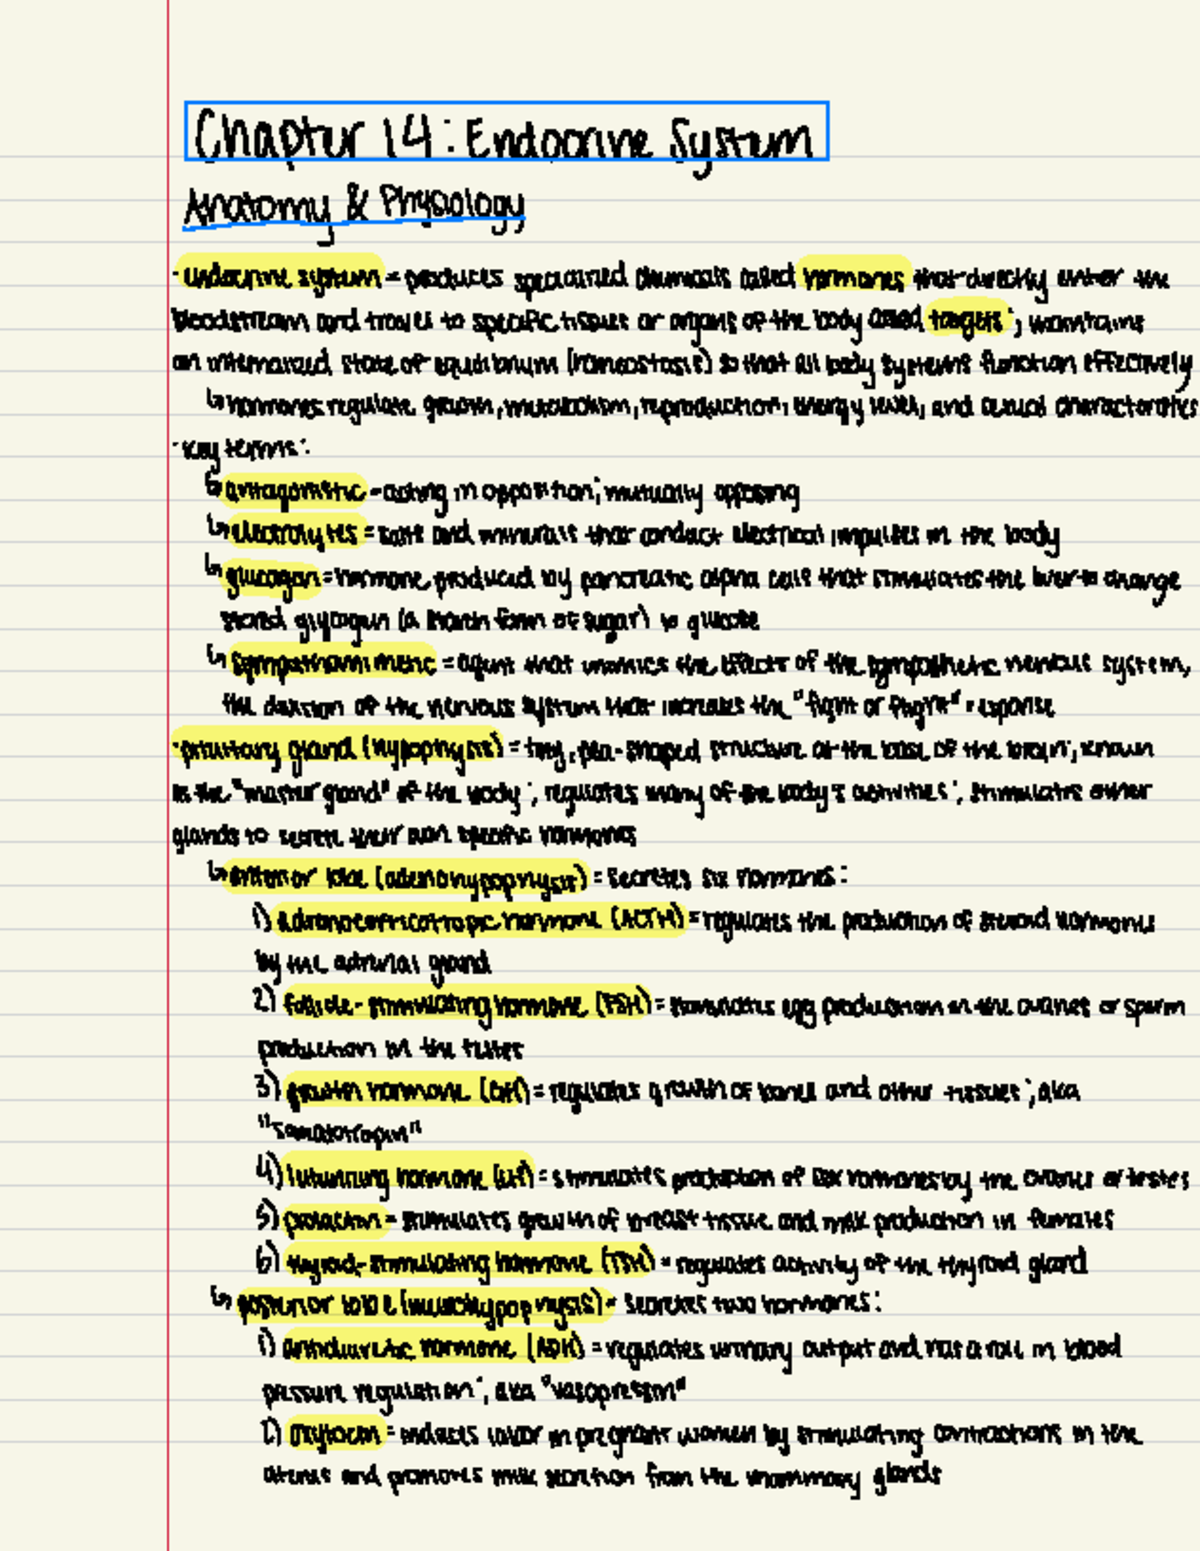 Chapter 14: Endocrine System
Anatomy & Physiology
· endocrine system = produces specialized chemicals called hormones that directly enter the
bloodstream and travel to specific tissues or organs of the body called targets; maintains
an internalized state of equilibrium (homeostasis) so that all body systems function effectively
↳ hormones regulate growth, metabolism, reproduction, energy level, and sexual characteristics
· key terms:
↳ antagonistic = acting in opposition; mutually opposing
↳ electrolytes = salts and minerals that conduct electrical impulses in the body
↳ glucagon = hormone produced by pancreatic alpha cells that stimulates the liver to change
stored glycogen (a form of sugar) to glucose
↳ sympathomimetic = agent that mimics the effects of the sympathetic nervous system,
the division of the nervous system that increases the "fight or flight" response
· pituitary gland (hypophysis) = tiny, pea-shaped structure at the base of the brain; known
as the "master gland" of the body; regulates many of the body's activities; stimulates other
glands to secrete their own specific hormones
↳ anterior lobe (adenohypophysis) = secretes six hormones:
1) adrenocorticotropic hormone (ACTH) = regulates the production of steroid hormones
by the adrenal gland
2) follicle-stimulating hormone (FSH) = stimulates egg production in the ovaries or sperm
production in the testes
3) growth hormone (GH) = regulates growth of bones and other tissues; aka
"somatotropin"
4) luteinizing hormone (LH) = stimulates production of sex hormones by the ovaries or testes
5) prolactin = stimulates growth of breast tissue and milk production in females
6) thyroid-stimulating hormone (TSH) = regulates activity of the thyroid gland
↳ posterior lobe (neurohypophysis) = secretes two hormones:
1) antidiuretic hormone (ADH) = regulates urinary output and has a roll in blood
pressure regulation; aka "vasopressin"
2) oxytocin = induces labor in pregnant women by stimulating contractions in the
uterus and promotes milk secretion from the mammary glands